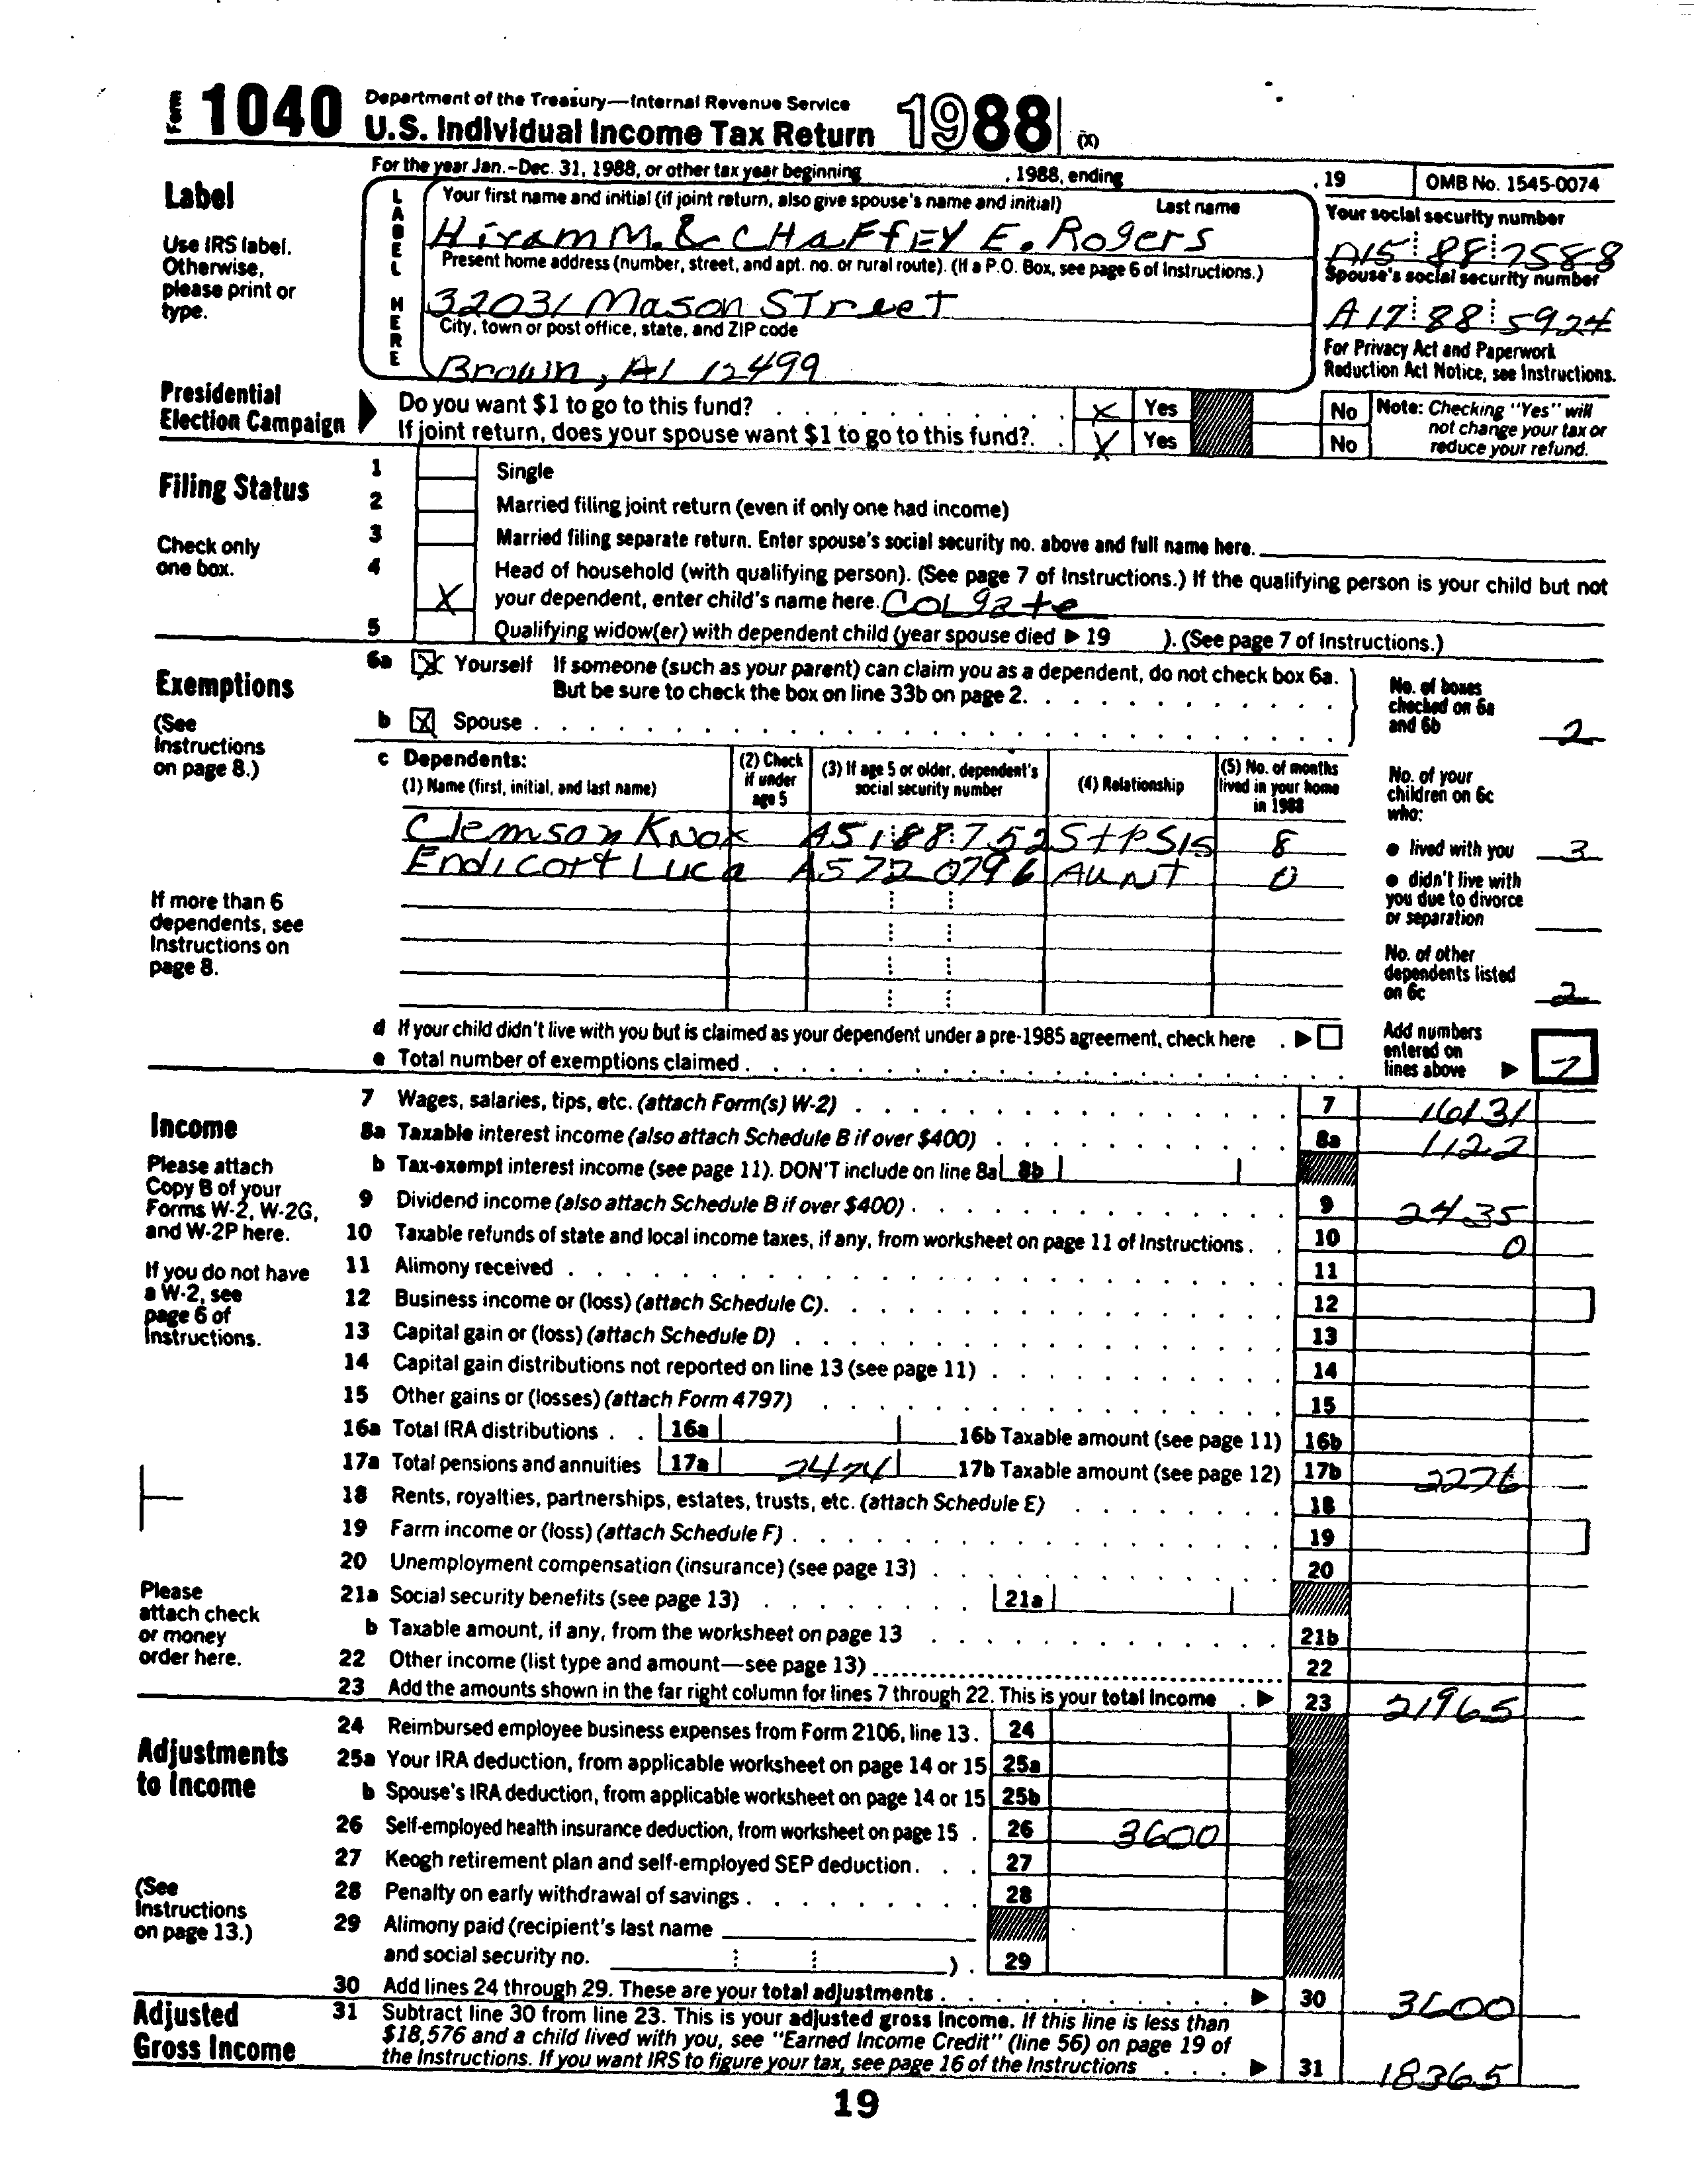 Form 1040 Department of the Treasury—Internal Revenue Service
U.S. Individual Income Tax Return 1988 (X)
For the year Jan.-Dec. 31, 1988, or other tax year beginning , 1988, ending , 19 OMB No. 1545-0074
Label
Use IRS label.
Otherwise,
please print or
type.
LABEL HERE
Your first name and initial (if joint return, also give spouse's name and initial) Last name
Hiram M. & CHaFfEY E. Rogers
Your social security number
A15 88 7588
Present home address (number, street, and apt. no. or rural route). (If a P.O. Box, see page 6 of Instructions.)
32031 Mason STreeT
Spouse's social security number
A17 88 5924
City, town or post office, state, and ZIP code
Brown, Al 12499
For Privacy Act and Paperwork
Reduction Act Notice, see Instructions.
Presidential
Election Campaign
Do you want $1 to go to this fund? X Yes No
If joint return, does your spouse want $1 to go to this fund? X Yes No
Note: Checking "Yes" will
not change your tax or
reduce your refund.
Filing Status
Check only
one box.
1 Single
2 Married filing joint return (even if only one had income)
3 Married filing separate return. Enter spouse's social security no. above and full name here.
4 Head of household (with qualifying person). (See page 7 of Instructions.) If the qualifying person is your child but not
X your dependent, enter child's name here. COLgate
5 Qualifying widow(er) with dependent child (year spouse died ▶ 19 ). (See page 7 of Instructions.)
Exemptions
(See
Instructions
on page 8.)
6a X Yourself If someone (such as your parent) can claim you as a dependent, do not check box 6a.
But be sure to check the box on line 33b on page 2.
b X Spouse
No. of boxes
checked on 6a
and 6b 2
c Dependents:
(1) Name (first, initial, and last name)
(2) Check
if under
age 5
(3) If age 5 or older, dependent's
social security number
(4) Relationship
(5) No. of months
lived in your home
in 1988
Clemson Knox A51 88 752 StPSIS 8
Endicott Luca A572 0796 AUNT 0
No. of your
children on 6c
who:
● lived with you 3
● didn't live with
you due to divorce
or separation
No. of other
dependents listed
on 6c 2
If more than 6
dependents, see
Instructions on
page 8.
d If your child didn't live with you but is claimed as your dependent under a pre-1985 agreement, check here ▶
e Total number of exemptions claimed
Add numbers
entered on
lines above ▶ 7
Income
Please attach
Copy B of your
Forms W-2, W-2G,
and W-2P here.
If you do not have
a W-2, see
page 6 of
Instructions.
Please
attach check
or money
order here.
7 Wages, salaries, tips, etc. (attach Form(s) W-2) 7 16131
8a Taxable interest income (also attach Schedule B if over $400) 8a 1122
b Tax-exempt interest income (see page 11). DON'T include on line 8a 8b
9 Dividend income (also attach Schedule B if over $400) 9 2435
10 Taxable refunds of state and local income taxes, if any, from worksheet on page 11 of Instructions 10 0
11 Alimony received 11
12 Business income or (loss) (attach Schedule C) 12
13 Capital gain or (loss) (attach Schedule D) 13
14 Capital gain distributions not reported on line 13 (see page 11) 14
15 Other gains or (losses) (attach Form 4797) 15
16a Total IRA distributions 16a 16b Taxable amount (see page 11) 16b
17a Total pensions and annuities 17a 2474 17b Taxable amount (see page 12) 17b 2276
18 Rents, royalties, partnerships, estates, trusts, etc. (attach Schedule E) 18
19 Farm income or (loss) (attach Schedule F) 19
20 Unemployment compensation (insurance) (see page 13) 20
21a Social security benefits (see page 13) 21a
b Taxable amount, if any, from the worksheet on page 13 21b
22 Other income (list type and amount—see page 13) 22
23 Add the amounts shown in the far right column for lines 7 through 22. This is your total income ▶ 23 21965
Adjustments
to Income
(See
Instructions
on page 13.)
24 Reimbursed employee business expenses from Form 2106, line 13. 24
25a Your IRA deduction, from applicable worksheet on page 14 or 15 25a
b Spouse's IRA deduction, from applicable worksheet on page 14 or 15 25b
26 Self-employed health insurance deduction, from worksheet on page 15 26 3600
27 Keogh retirement plan and self-employed SEP deduction 27
28 Penalty on early withdrawal of savings 28
29 Alimony paid (recipient's last name
and social security no. ) 29
30 Add lines 24 through 29. These are your total adjustments ▶ 30 3600
Adjusted
Gross Income
31 Subtract line 30 from line 23. This is your adjusted gross income. If this line is less than
$18,576 and a child lived with you, see "Earned Income Credit" (line 56) on page 19 of
the Instructions. If you want IRS to figure your tax, see page 16 of the Instructions ▶ 31 18365
19